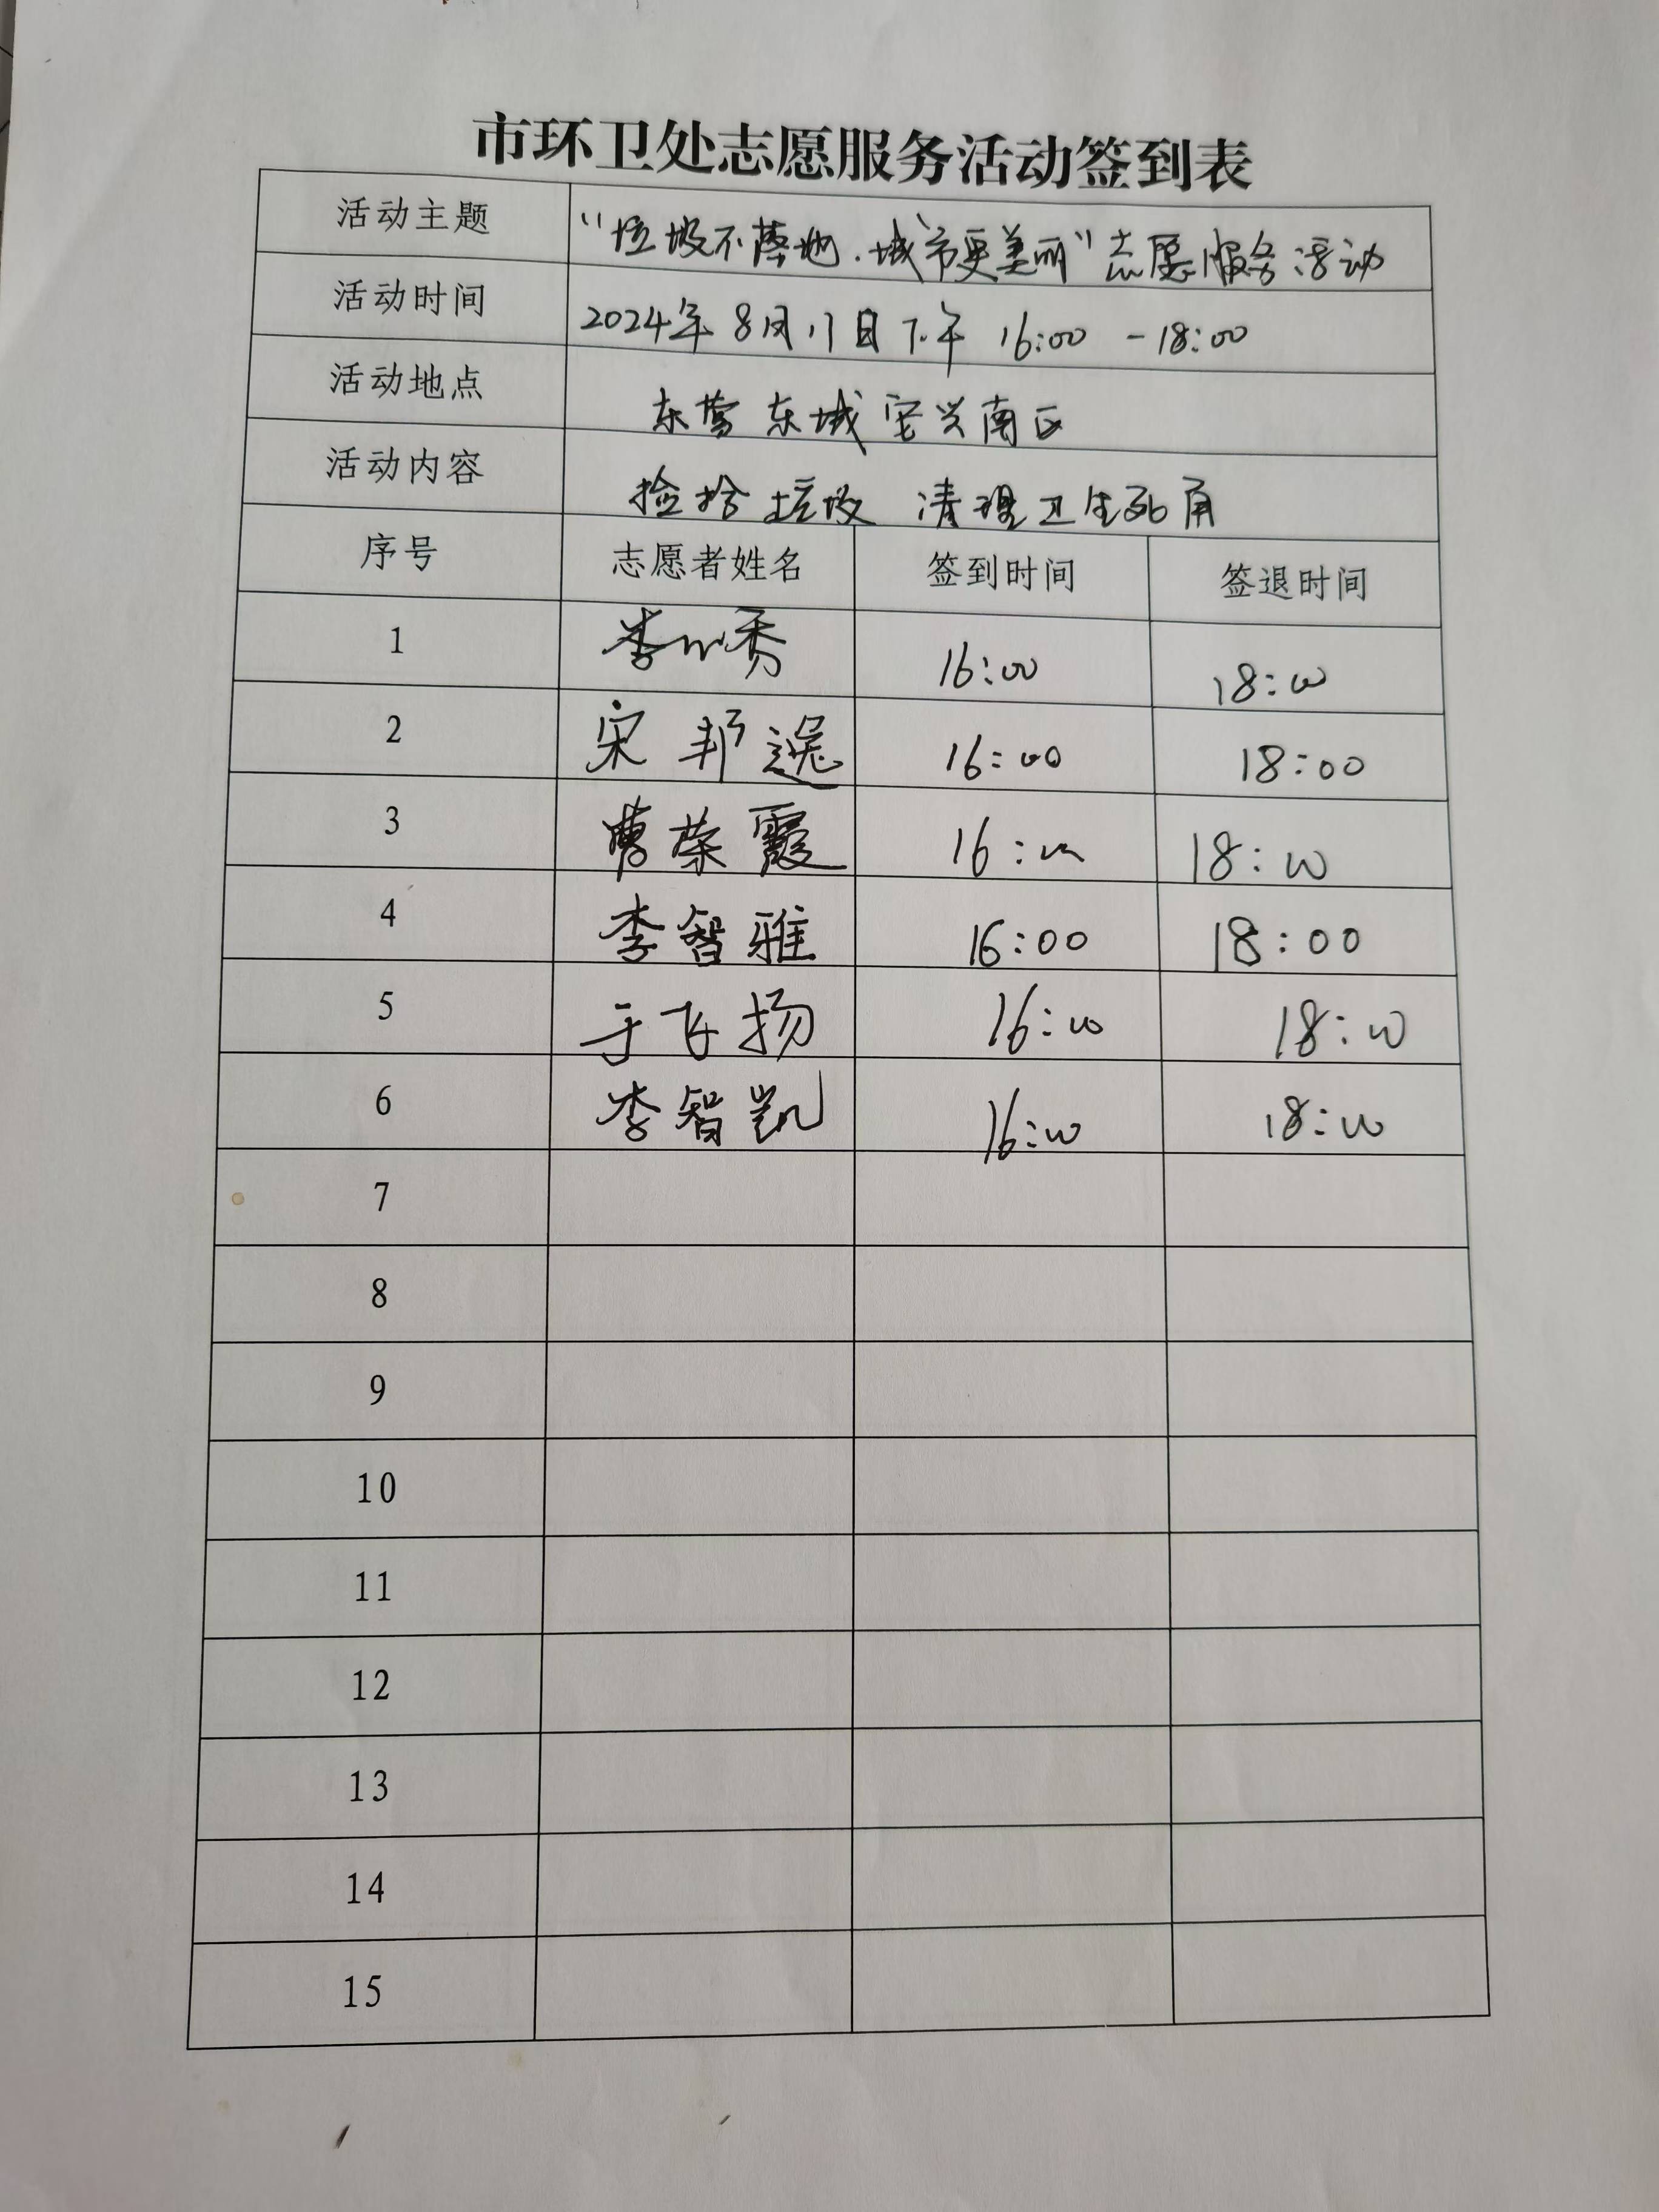 市环卫处志愿服务活动签到表
活动主题 “垃圾不落地.城市更美丽”志愿服务活动
活动时间 2024年8月11日下午 16:00 -18:00
活动地点 东营东城安兴南区
活动内容 捡拾垃圾 清理卫生死角
序号 志愿者姓名 签到时间 签退时间
1 李 秀 16:00 18:00
2 宋邦逸 16:00 18:00
3 曹荣霞 16:00 18:00
4 李智雅 16:00 18:00
5 于飞扬 16:00 18:00
6 李智凯 16:00 18:00
7
8
9
10
11
12
13
14
15